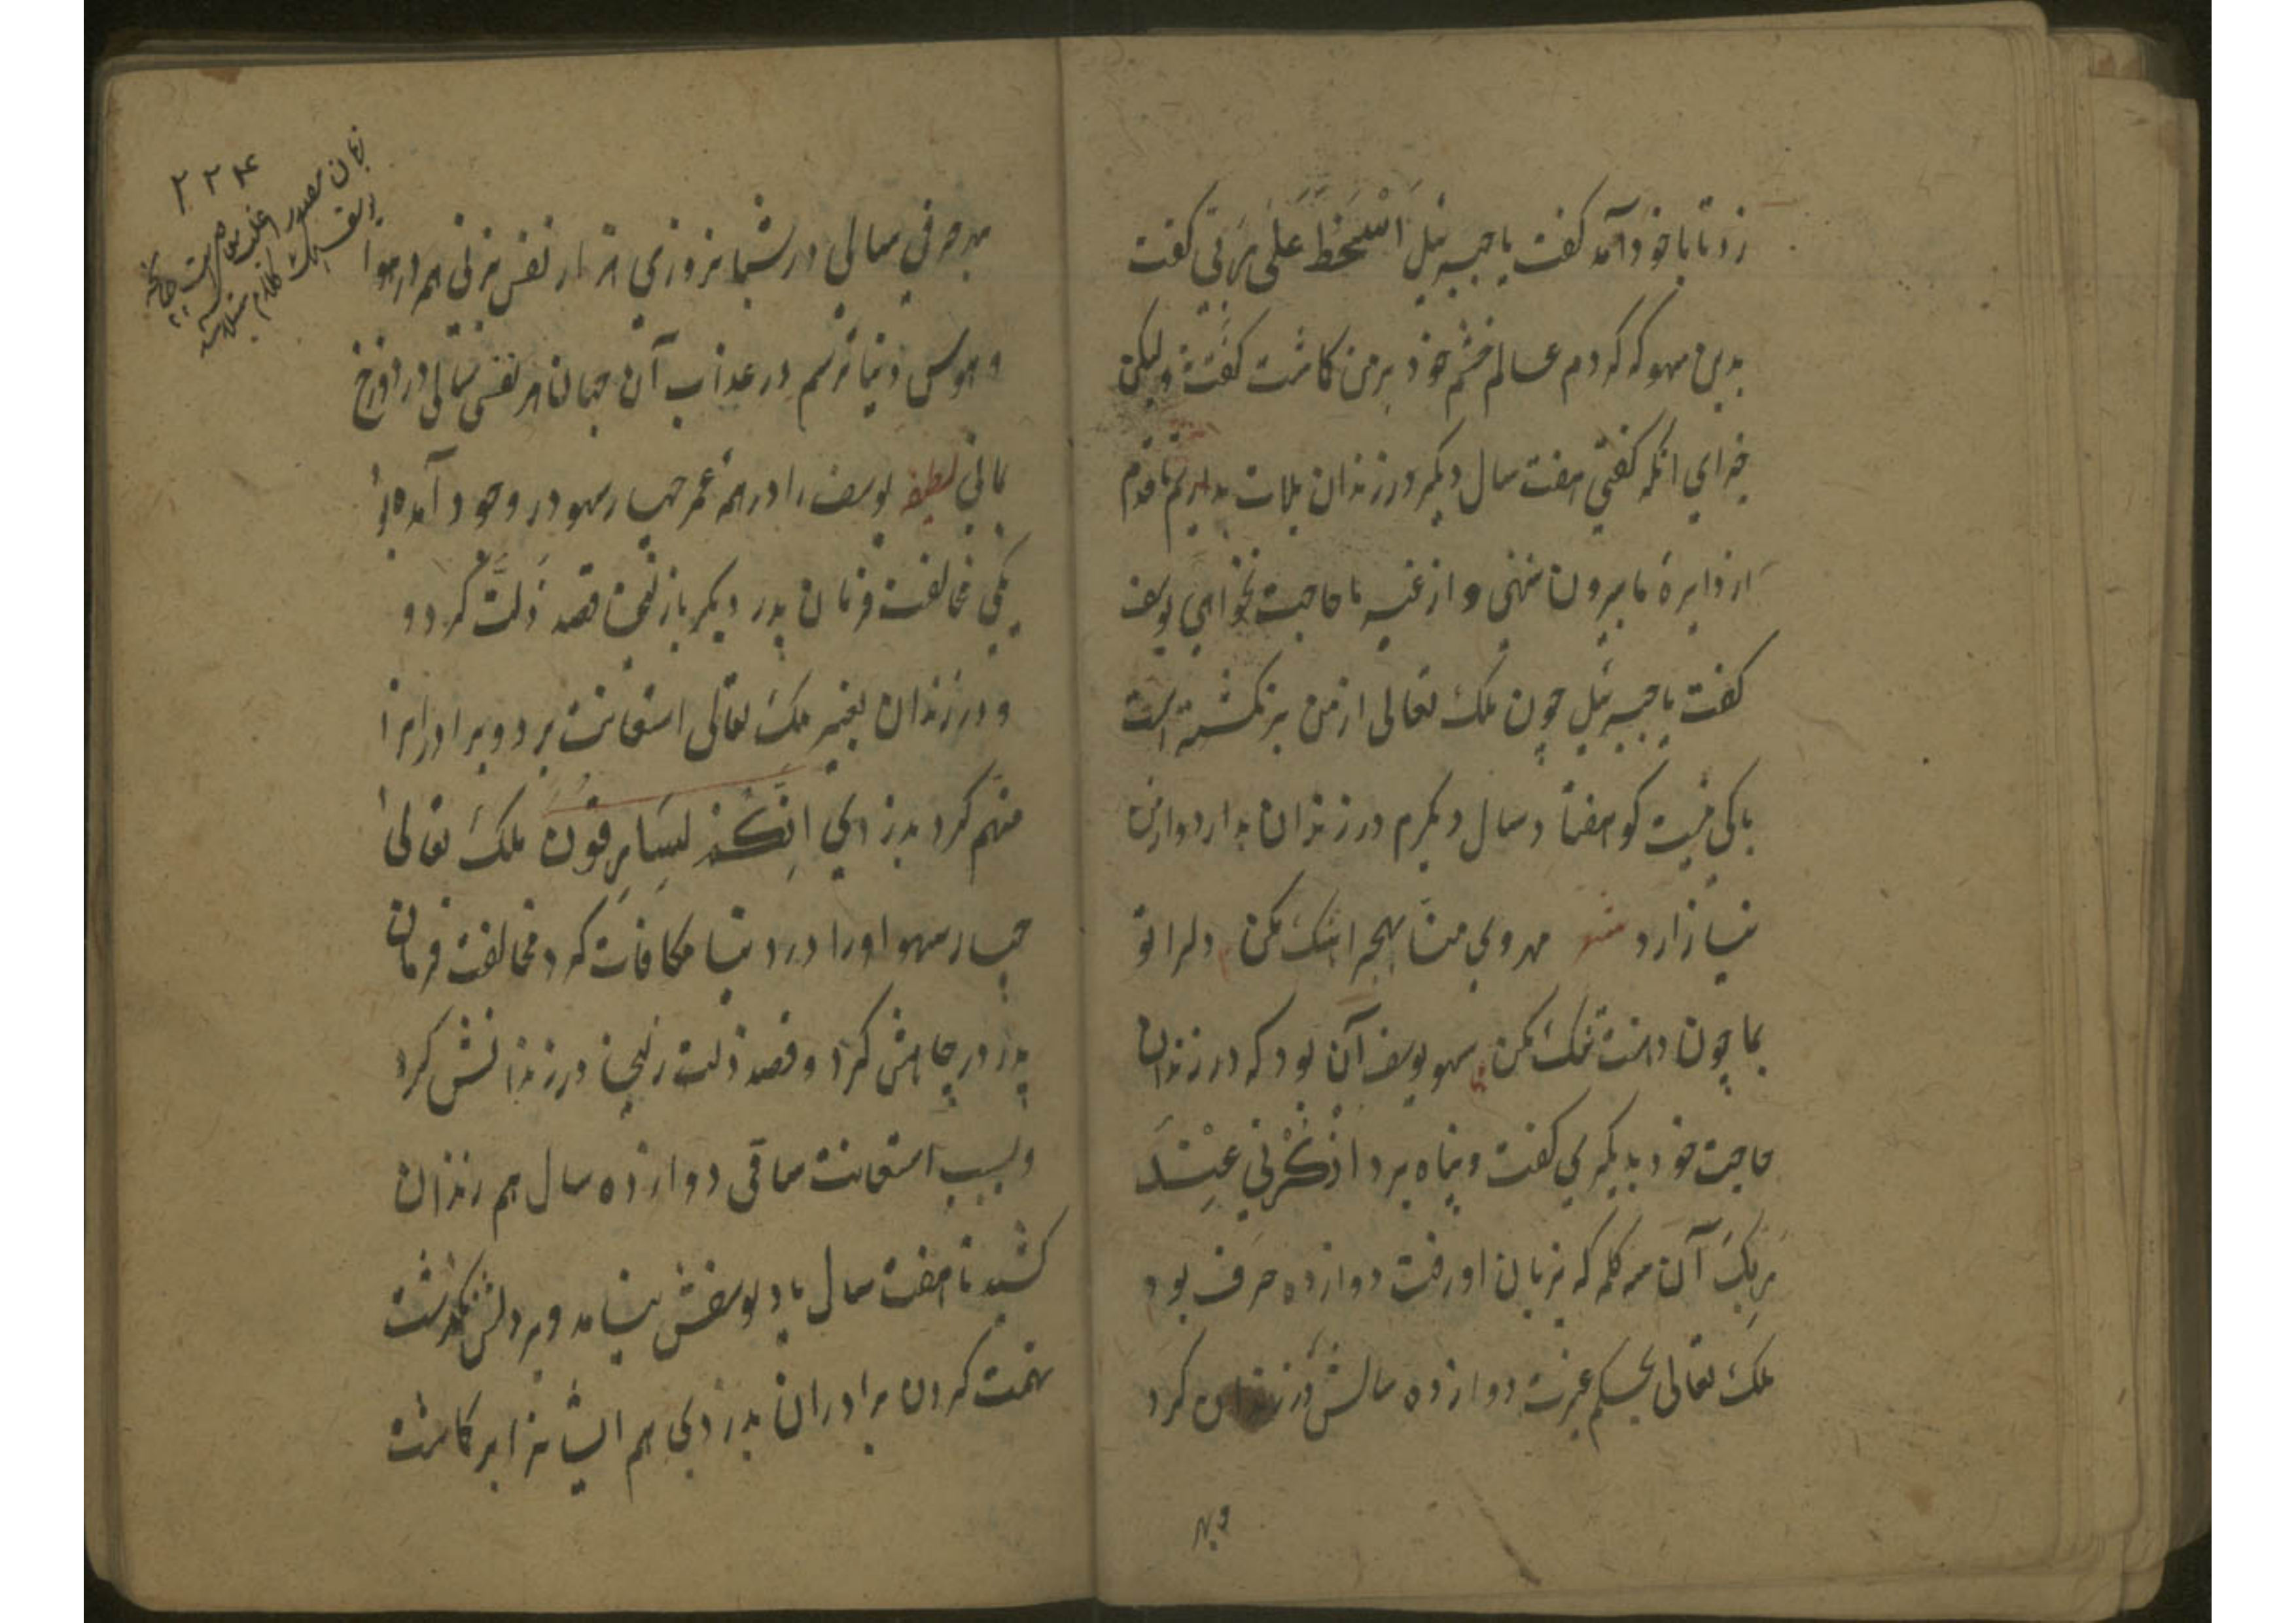 زد تا با خود آمد کفت یا جبرئیل اَسْخَطَ عَلَیَّ رَبّی کفت
بدین سهو که کردم عالم خشم خود بر من کاشت کفت نه ولیکن
چرای انکه کفتی هفت سال دیکر در زندان بلات بداریم تا قدم
از دایرهٔ ما بیرون ننهی و از غیر ما حاجت نخواهی یوسف
کفت یا جبرئیل چون ملک تعالی از من برنکشته است
باکی نیست کو هفتاد سال دیکرم در زندان بدارد و از من
نیازارد مهروی منا بهجر اهنک مکن دلرا تو
بما چون دهنت تنک مکن سهو یوسف آن بود که در زندان
حاجت خود بدیکری کفت و پناه برد اذْکُرْنِی عِنْدَ
رَبِّکَ آن سه کلمه که بر زبان او رفت دوازده حرف بود
ملک تعالی بحکم عزت دوازده سالش در زندان کرد
و بهر
۲۲۴
بهر حرفی سالی در شبانروزی هزار نفس بزنی همه در هوا
و هوس دنیا ترسم در عذاب آن جهان هر نفسی سالی در دوزخ
بمانی لطیفه یوسف را در همه عمر چهار سهو در وجود آمده بود
یکی مخالفت فرمان پدر دیکر با زلیخا قصد زلت کرد و
و در زندان بغیر ملک تعالی استعانت برد و برادرانرا
متهم کرد بدزدی اِنَّکُمْ لَسَارِقُونَ ملک تعالی
چهار سهو اورا در دنیا مکافات کرد مخالفت فرمان
پدر در چاهش کرد و قصد زلت زلیخا در زندانش کرد
و بسبب استعانت ساقی دوازده سال هم زندان
کشید تا هفت سال یاد یوسفش نیامد و بر دلش نکذشت
تهمت کردن برادران بدزدی هم ایشانرا بر کاشت